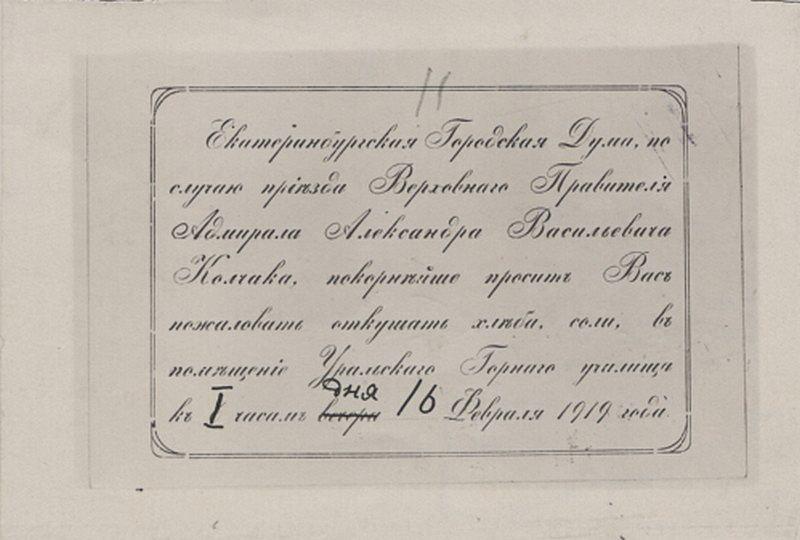 11
Екатеринбургская Городская Дума, по
случаю пріѣзда Верховнаго Правителя
Адмирала Александра Васильевича
Колчака, покорнѣйше проситъ Васъ
пожаловать откушать хлѣба, соли, въ
помѣщеніе Уральскаго Горнаго училища
дня
къ I часамъ вечера 16 Февраля 1919 года